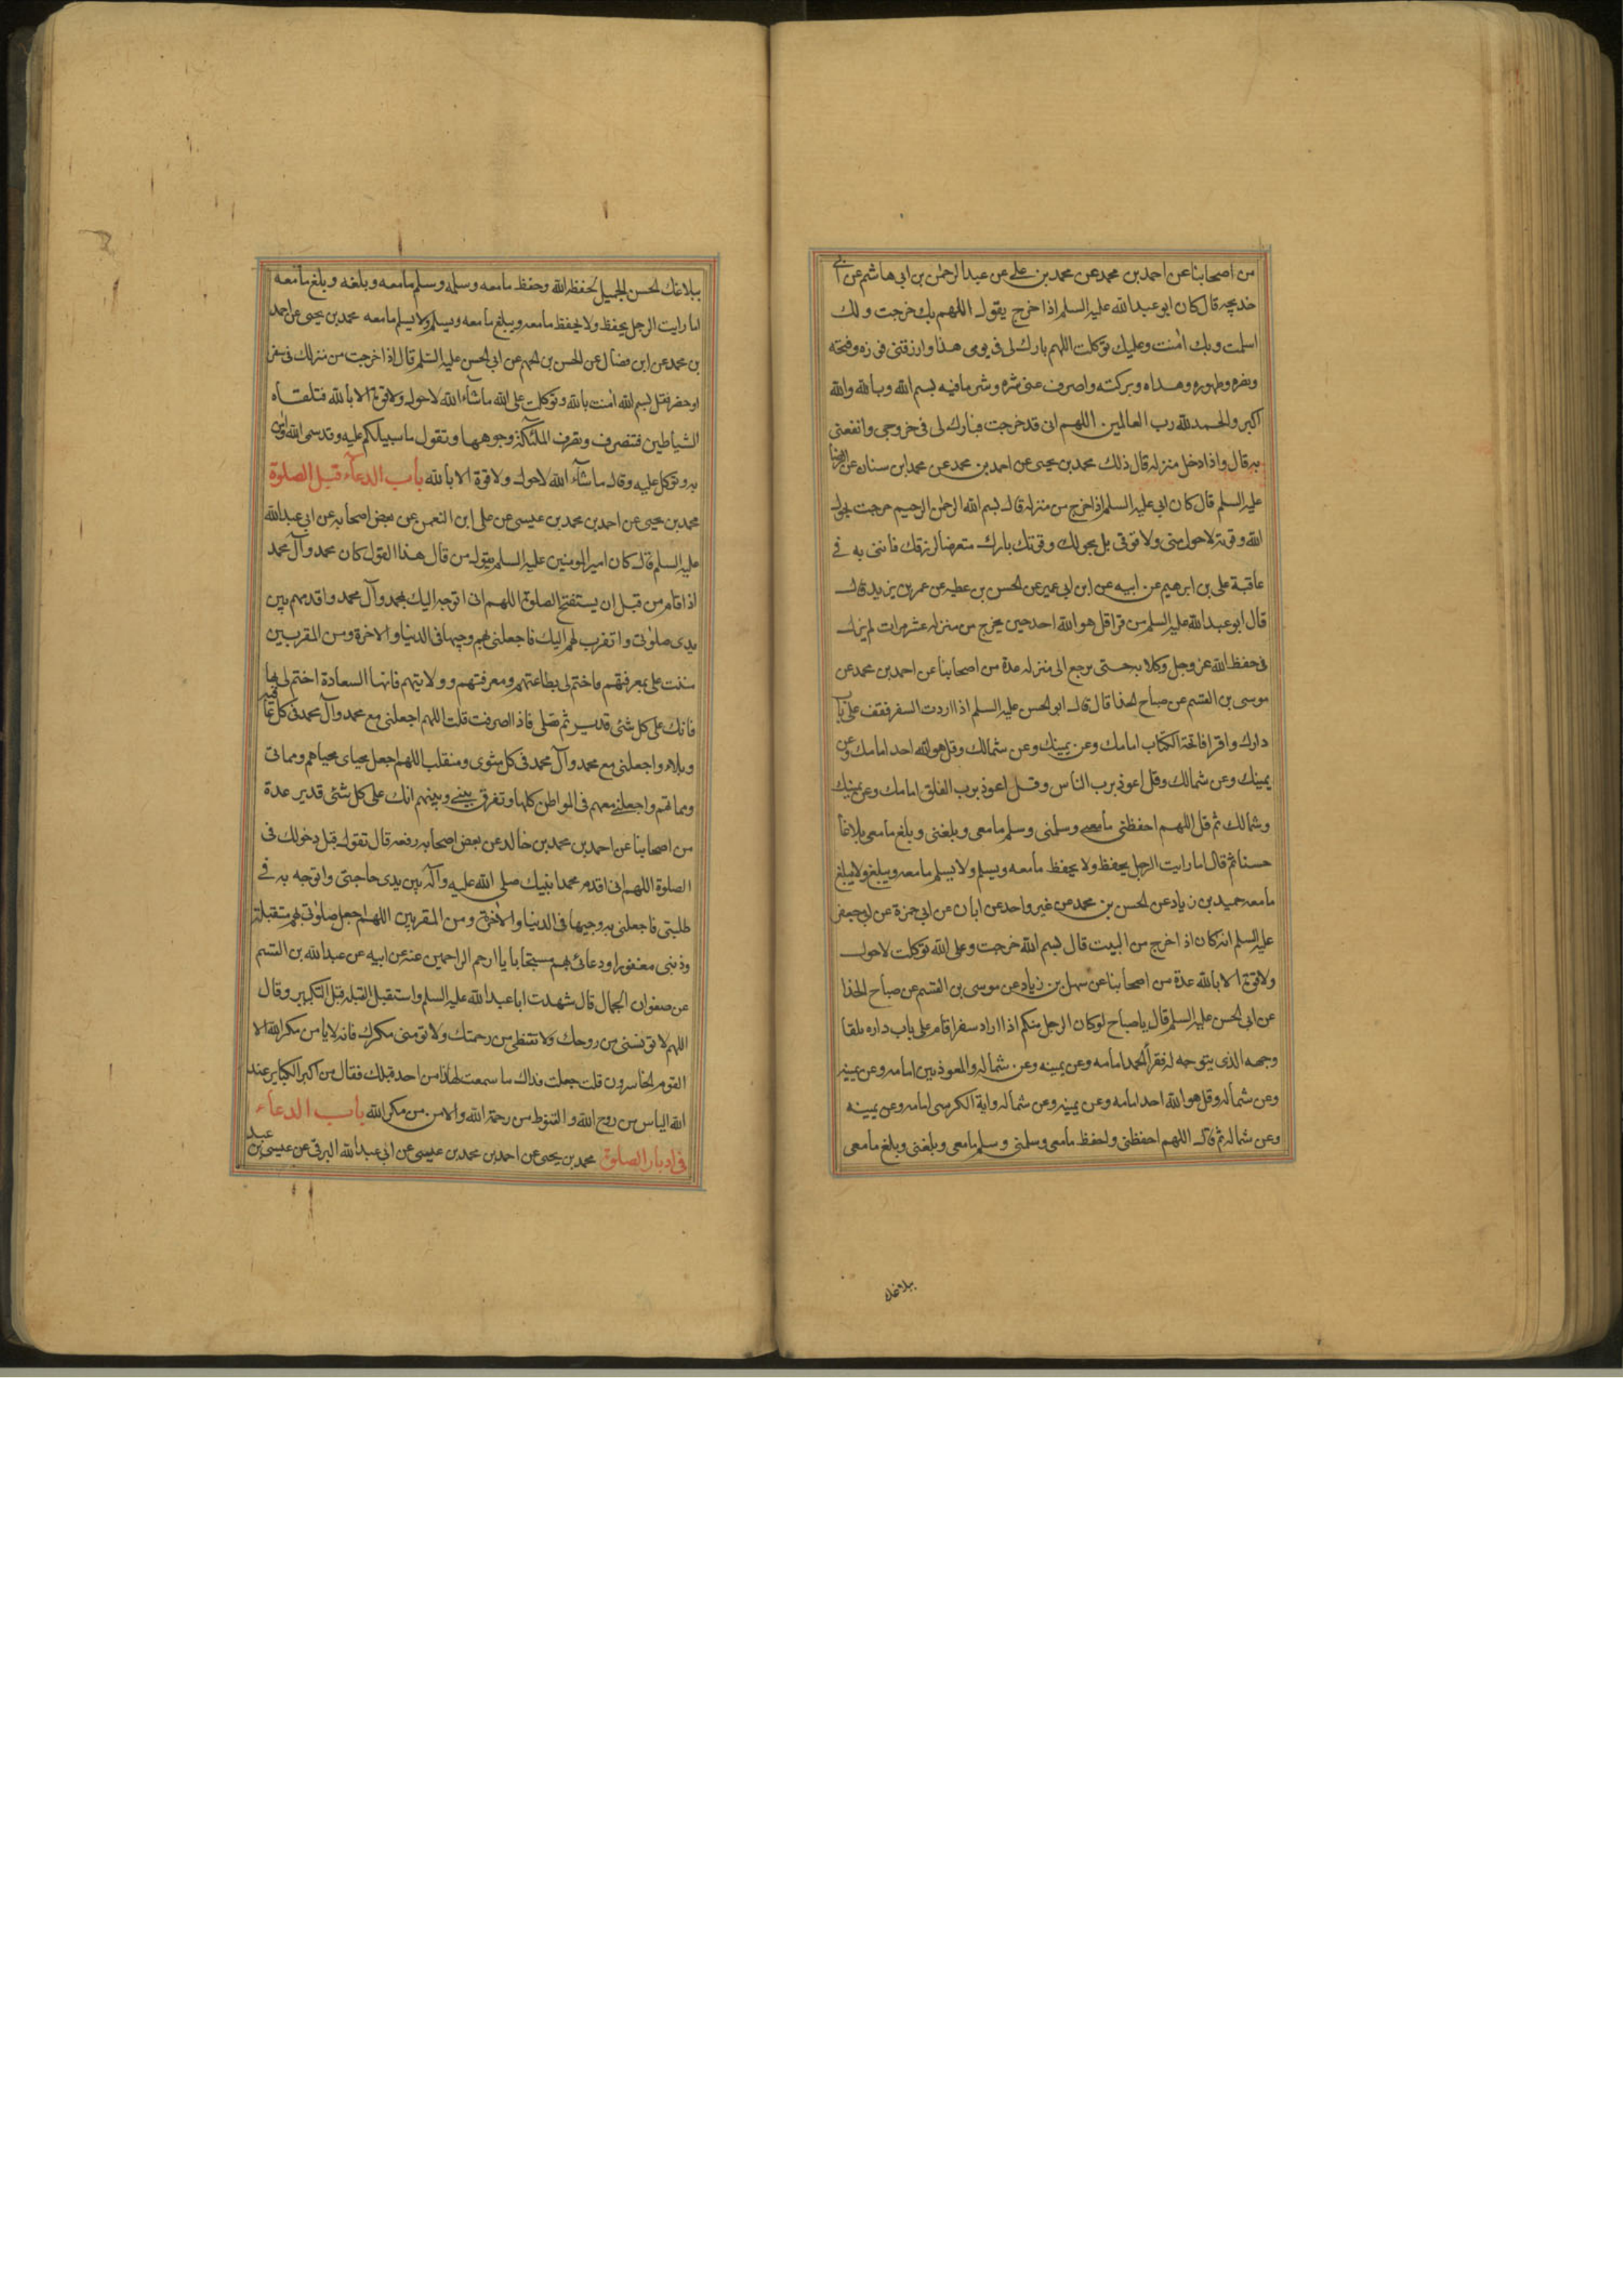 من اصحابنا عن احمد بن محمد عن محمد بن علي عن عبد الرحمن بن ابي هاشم عن ابي
خديجه قال كان ابو عبد الله عليه السلم اذا خرج يقول اللهم بك خرجت ولك
اسلمت وبك امنت وعليك توكلت اللهم بارك لى فى يومى هذا وارزقنى فوزه وفتحه
ونصره وطهوره وهداه وبركته واصرف عنى شره وشر ما فيه بسم الله وبالله والله
اكبر والحمد لله رب العالمين اللهم انى قد خرجت فبارك لى فى خروجى وانفعنى
به قال واذا دخل منزله قال ذلك محمد بن يحيى عن احمد بن محمد عن محمد ابن سنان عن الرضا
عليه السلم قال كان ابى عليه السلم اذا خرج من منزله قال بسم الله الرحمن الرحيم خرجت بحول
الله وقوته لا حول منى ولا قوتى بل بحولك وقوتك يارب متعرضا لرزقك فاتنى به في
عاقبة على بن ابرهيم عن ابيه عن ابن ابى عمير عن الحسن بن عطيه عن عمر بن يزيد قال
قال ابو عبد الله عليه السلم من قرا قل هو الله احد حين يخرج من منزله عشر مرات لم يزل
فى حفظ الله عز وجل وكلا به حتى يرجع الى منزله عدة من اصحابنا عن احمد بن محمد عن
موسى بن القسم عن صباح الحذا قال قال ابو الحسن عليه السلم اذا اردت السفر فقف على باب
دارك واقرا فاتحة الكتاب امامك وعن يمينك وعن شمالك وقل هو الله احد امامك وعن
يمينك وعن شمالك وقل اعوذ برب الناس وقل اعوذ برب الفلق امامك وعن يمينك
وشمالك ثم قل اللهم احفظنى ما معى وسلمنى وسلم ما معى وبلغنى وبلغ ما معى بلاغا
حسنا ثم قال اما رايت الرجل يحفظ ولا يحفظ ما معه ويسلم ولا يسلم ما معه ويبلغ ولا يبلغ
ما معه حميد بن زياد عن الحسن بن محمد عن غير واحد عن ابان عن ابي حمزة عن ابي جعفر
عليه السلم انه كان اذا خرج من البيت قال بسم الله خرجت وعلى الله توكلت لا حول
ولا قوة الا بالله عدة من اصحابنا عن سهل بن زياد عن موسى بن القسم عن صباح الحذا
عن ابى الحسن عليه السلم قال يا صباح لو كان الرجل منكم اذا اراد سفرا قام على باب داره تلقا
وجهه الذى يتوجه له فقرا الحمد امامه وعن يمينه وعن شماله والمعوذتين امامه وعن يمينه
وعن شماله وقل هو الله احد امامه وعن يمينه وعن شماله واية الكرسى امامه وعن يمينه
وعن شماله ثم قال اللهم احفظنى واحفظ ما معى وسلمنى وسلم ما معى وبلغنى وبلغ ما معى
ببلاغك
ببلاغك الحسن الجميل لحفظه الله وحفظ ما معه وسلمه وسلم ما معه وبلغه وبلغ ما معه
اما رايت الرجل يحفظ ولا يحفظ ما معه ويبلغ ما معه ويسلم ولا يسلم ما معه محمد بن يحيى عن احمد
بن محمد عن ابن فضال عن الحسن بن الجهم عن ابى الحسن عليه السلم قال اذا خرجت من منزلك فى سفر
او حضر فقل بسم الله امنت بالله وتوكلت على الله ما شاء الله لا حول ولا قوة الا بالله فتلقاه
الشياطين فتنصرف وتضرب الملئكة وجوهها وتقول ما سبيلكم عليه وقد سمى الله وامن
به وتوكل عليه وقال ما شاء الله لا حول ولا قوة الا بالله باب الدعاء قبل الصلوة
محمد بن يحيى عن احمد بن محمد بن عيسى عن على ابن النعمن عن بعض اصحابه عن ابى عبد الله
عليه السلم قال كان امير المومنين عليه السلم يقول من قال هذا القول كان محمد وآل محمد
اذا قام من قبل ان يستفتح الصلوة اللهم انى اتوجه اليك بمحمد وآل محمد واقدمهم بين
يدى صلوتى واتقرب بهم اليك فاجعلنى بهم وجيها فى الدنيا والاخرة ومن المقربين
مننت على بمعرفتهم فاختم لى بطاعتهم ومعرفتهم وولايتهم فانها السعادة اختم لى بها
فانك على كل شئ قدير ثم تصلى فاذا انصرفت قلت اللهم اجعلنى مع محمد وآل محمد فى كل عافية
وبلاء واجعلنى مع محمد وآل محمد فى كل مثوى ومنقلب اللهم اجعل محياى محياهم ومماتى
ومماتهم واجعلنى معهم فى المواطن كلها وتفرق بينى وبينهم انك على كل شئ قدير عدة
من اصحابنا عن احمد بن محمد بن خالد عن بعض اصحابه رفعه قال تقول قبل دخولك فى
الصلوة اللهم انى اقدم محمدا نبيك صلى الله عليه وآله بين يدى حاجتى واتوجه به فى
طلبتى فاجعلنى به وجيها فى الدنيا والاخرة ومن المقربين اللهم اجعل صلوتى بهم متقبلة
وذنبى مغفورا ودعائى بهم مستجابا يا ارحم الراحمين عنه عن ابيه عن عبد الله بن القسم
عن صفوان الجمال قال شهدت ابا عبد الله عليه السلم واستقبل القبلة قبل التكبير وقال
اللهم لا تويسنى من روحك ولا تقنطنى من رحمتك ولا تومنى مكرك فانه لا يامن مكر الله الا
القوم الخاسرون قلت جعلت فداك ما سمعت لهذا من احد قبلك فقال من اكبر الكباير عند
الله الياس من روح الله والقنوط من رحمة الله والامن من مكر الله باب الدعاء
فى ادبار الصلوة محمد بن يحيى عن احمد بن محمد بن عيسى عن ابى عبد الله البرقى عن عيسى بن عبد